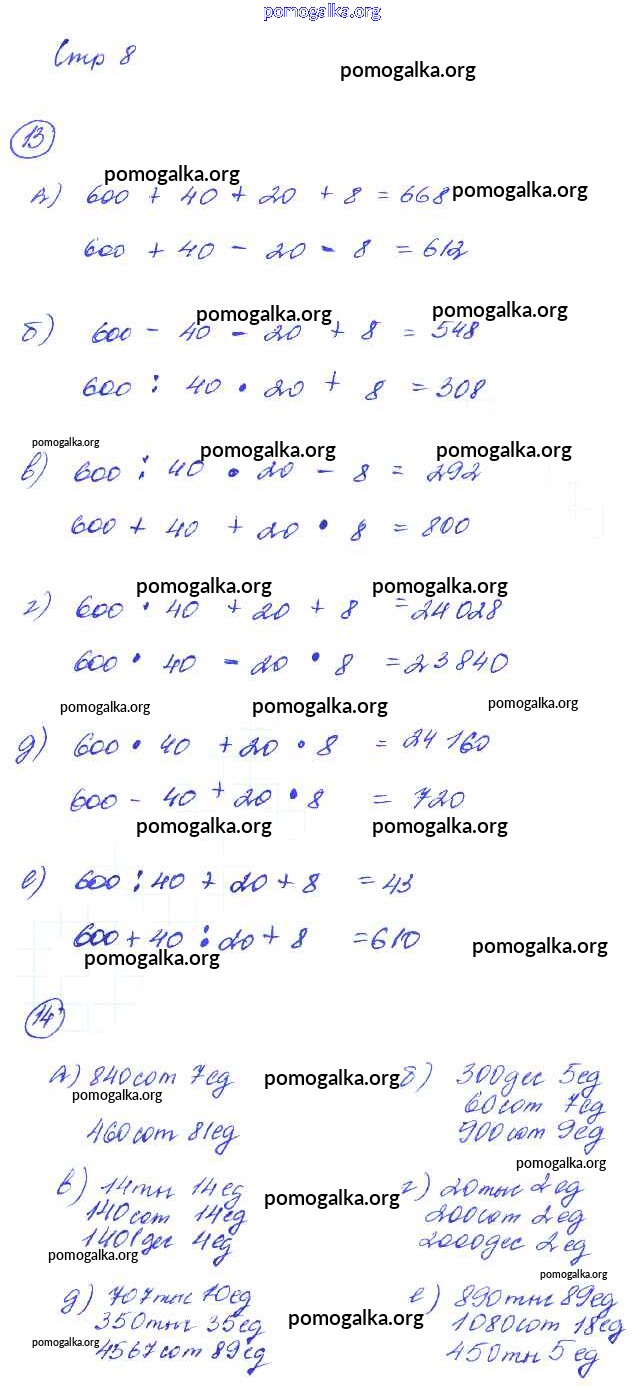 pomogalka.org
Стр 8
pomogalka.org
13
pomogalka.org
А) 600 + 40 + 20 + 8 = 668
pomogalka.org
600 + 40 - 20 - 8 = 612
pomogalka.org
pomogalka.org
б) 600 - 40 - 20 + 8 = 548
600 : 40 • 20 + 8 = 308
pomogalka.org
pomogalka.org
pomogalka.org
в) 600 : 40 • 20 - 8 = 292
600 + 40 + 20 • 8 = 800
pomogalka.org
pomogalka.org
г) 600 • 40 + 20 + 8 = 24 028
600 • 40 - 20 • 8 = 23 840
pomogalka.org
pomogalka.org
pomogalka.org
д) 600 • 40 + 20 • 8 = 24 160
600 - 40 + 20 • 8 = 720
pomogalka.org
pomogalka.org
е) 600 : 40 + 20 + 8 = 43
600 + 40 : 20 + 8 = 610
pomogalka.org
pomogalka.org
14
А) 840 сот 7 ед
pomogalka.org
pomogalka.org
460 сот 81 ед
б) 300 дес 5 ед
60 сот 7 ед
900 сот 9 ед
pomogalka.org
в) 14 тн 14 ед
140 сот 14 ед
1401 дес 4 ед
pomogalka.org
pomogalka.org
г) 20 тыс 2 ед
200 сот 2 ед
2000 дес 2 ед
pomogalka.org
д) 707 тыс 70 ед
350 тыс 35 ед
4567 сот 89 ед
pomogalka.org
pomogalka.org
е) 890 тыс 89 ед
1080 сот 18 ед
450 тн 5 ед